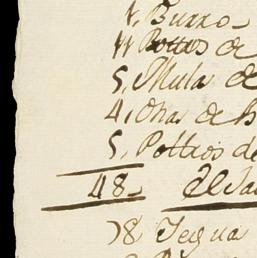 1, Burro
11 Potros de
5, Mula de
4, Otras de h
5, Potros de
48
78 Yegua